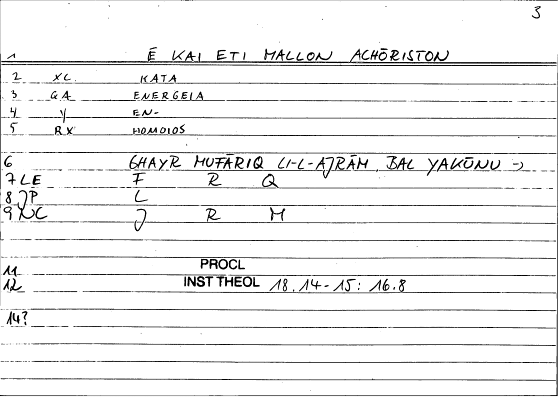 3
1 Ē KAI ETI MALLON ACHŌRISTON
2 XC KATA
3 GA ENERGEIA
4 Y EN-
5 RX HOMOIOS
6 GHAYR MUFĀRIQ LI-L-AJRĀM, BAL YAKŪNU →
7 LE F R Q
8 JP L
9 NC J R M
11 PROCL
12 INST THEOL 18.14-15: 16.8
14?